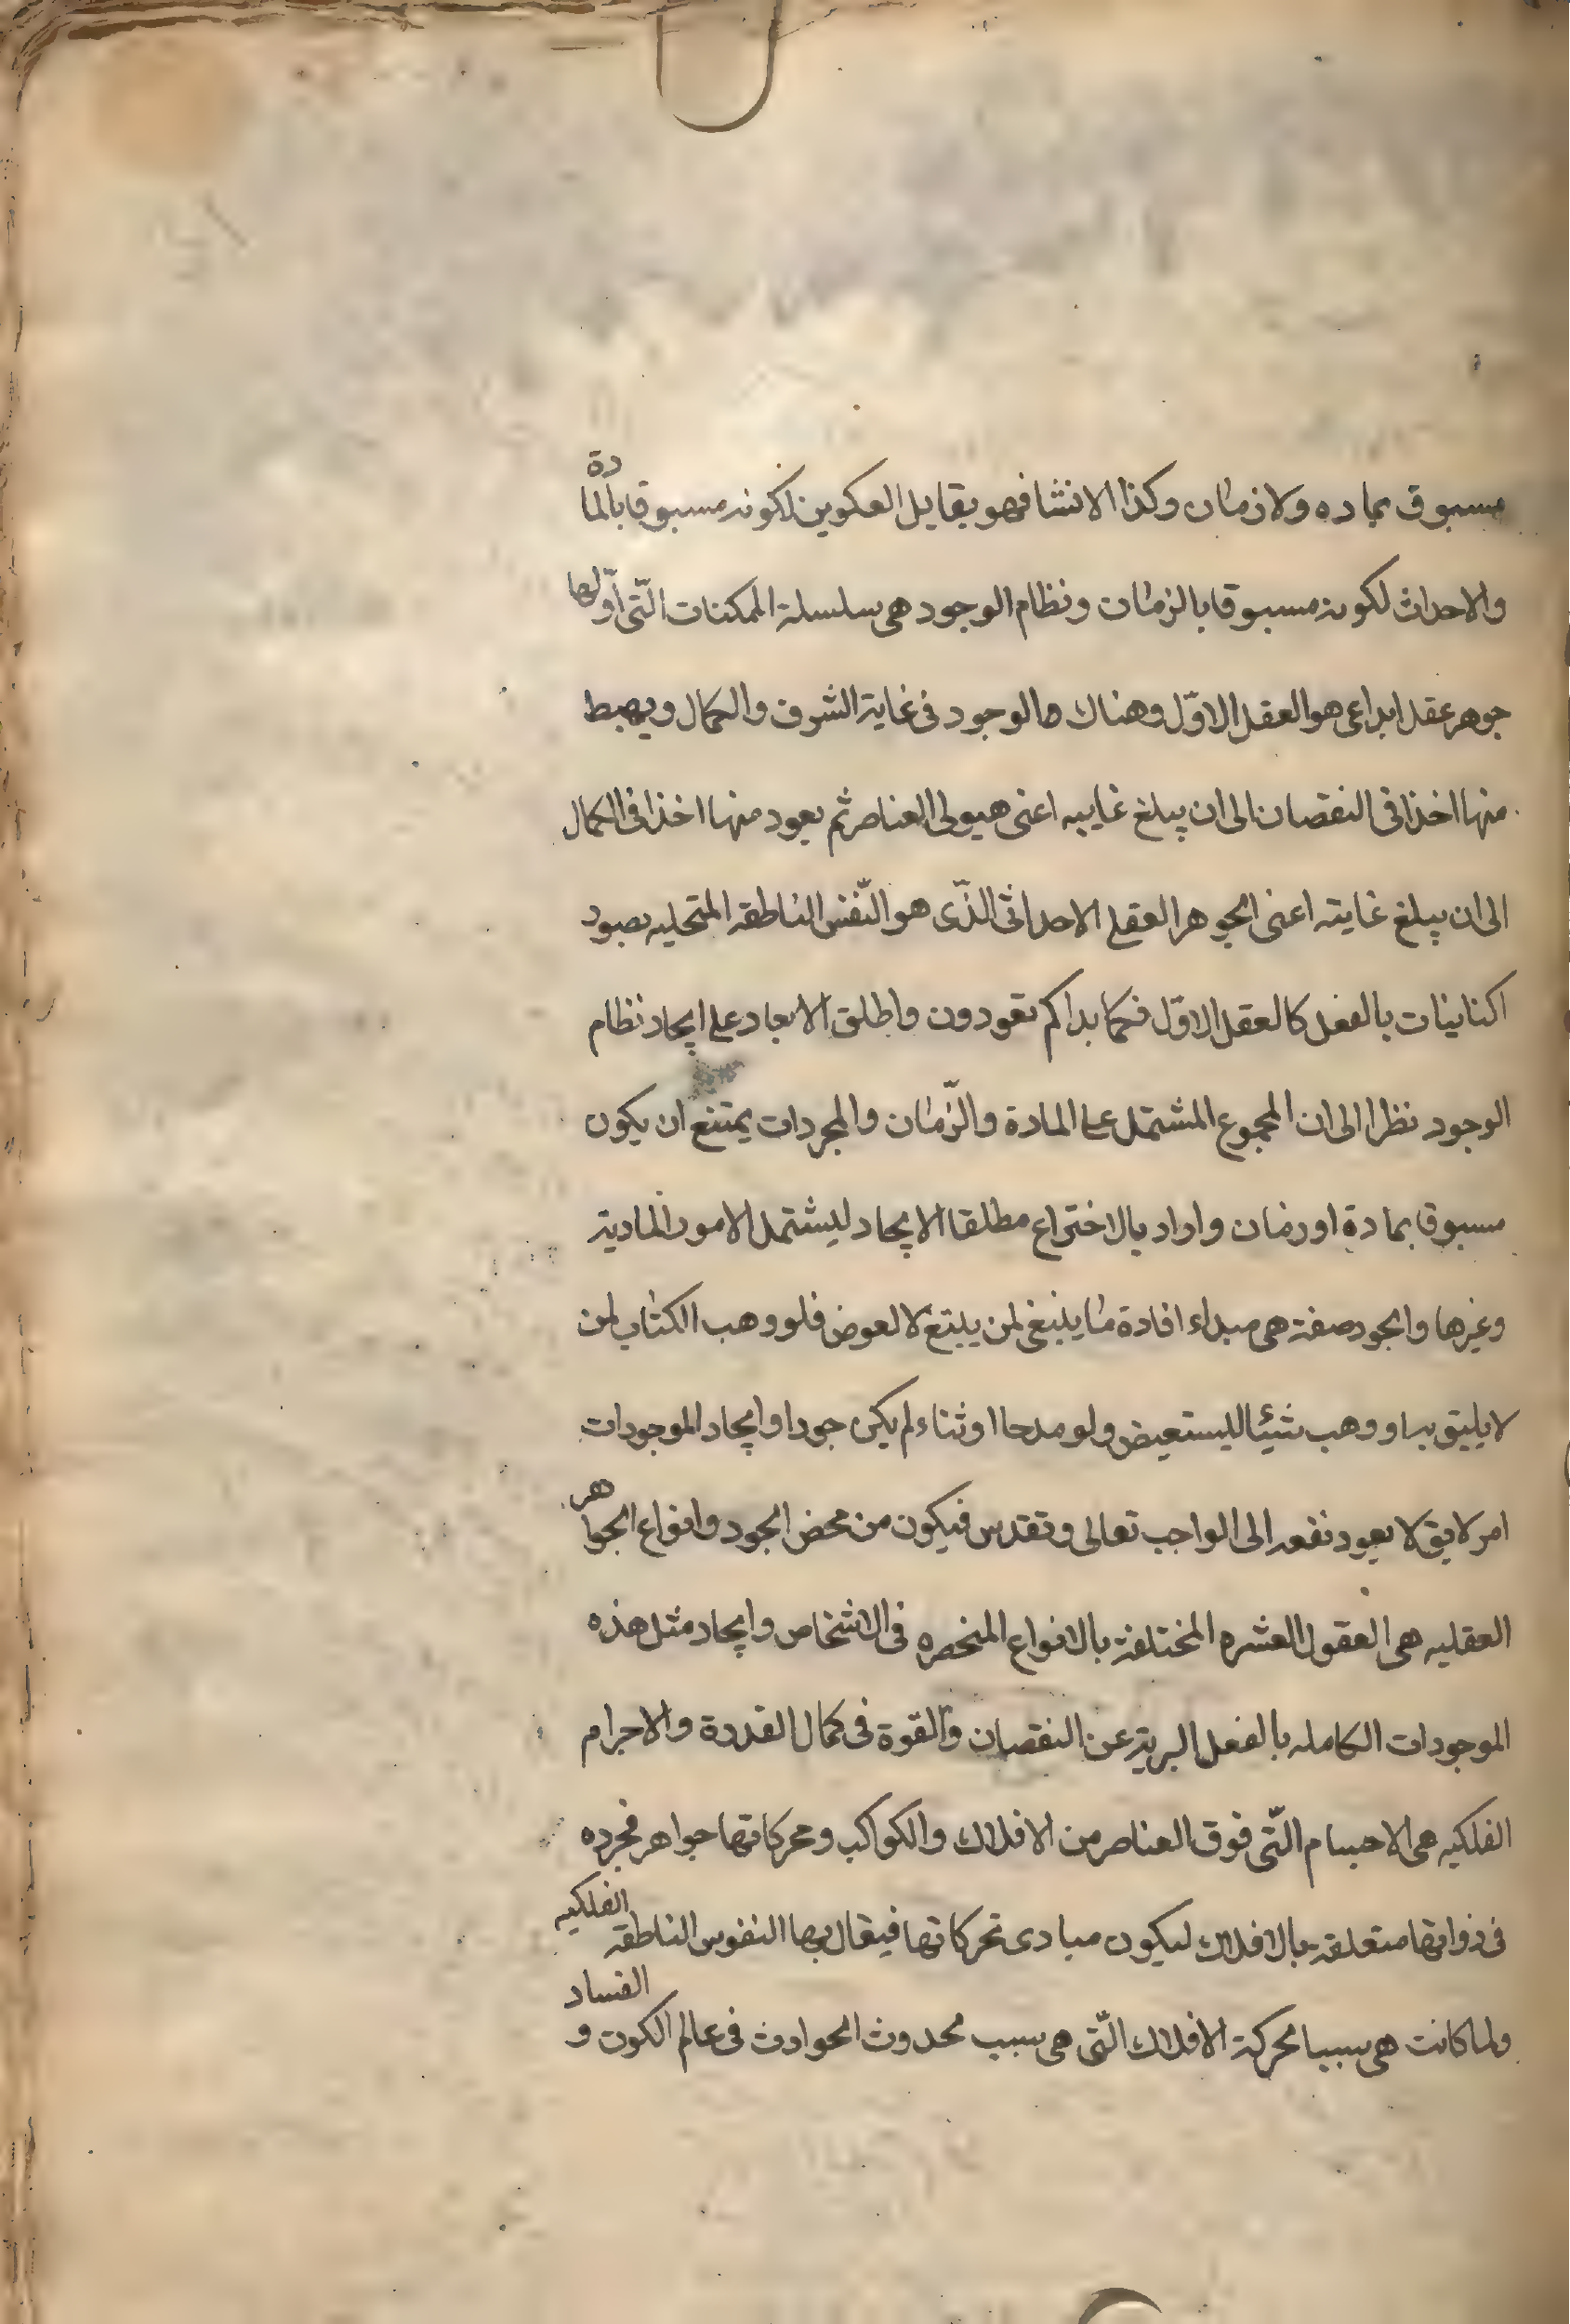 مسبوق بماده ولا زمان وكذا الانشا فهو يقابل العكوين لكونه مسبوقا بالمادة
والاحداث لكونه مسبوقا بالزمان ونظام الوجود هى سلسلة الممكنات الّتى اوّلها
جوهر عقل ابداعى هو العقل الاوّل وهناك ما الوجود فى غاية الشرف والكمال ويهبط
منها اخذا فى النقصان الى ان يبلغ غايبه اعنى هيولى العناصر ثم يعود منها اخذا فى الكمال
الى ان يبلغ غايته اعنى الجوهر العقلى الاحداثى الذّى هو النّفس الناطقه المتحليه بصود
اكناينات بالفعل كالعقل الاوّل فكما بداكم تعودون واطلق الابعاد على ايجاد نظام
الوجود نظرا الى ان المجموع المشتمل على المادة والزّمان والمجردات يمتنع ان يكون
مسبوقا بمادة او زمان واراد بالاختراع مطلقا الايجاد ليشتمل الامور المادية
وغيرها والجود صفة هى مبداء افادة ما ينبغى لمن يبتغ لا لعوض فلو وهب الكتاب لمن
لا يليق به او وهب شيئا ليستعيض ولو مدحا او ثناء لم يكن جودا وايجاد الموجودات
امر لايق لا يعود نفعه الى الواجب تعالى وتقدس فيكون من محض الجود وانواع الجواهر
العقليه هى العقول العشره المختلفة بالانواع المنحصره فى الاشخاص وايجاد مثل هذه
الموجودات الكامله بالفعل البرية عن النقصان والقوة فى كمال القدرة والاجرام
الفلكيه هى الاجسام الّتى فوق العناصر من الافلاك والكواكب ومحركاتها جواهر مجرده
فى ذواتها متعلقة بالافلاك ليكون مبادى تحركاتها فيقال بها النفوس الناطقه الفلكيه
ولما كانت هى سببا لحركة الافلاك الّتى هى سبب لحدوث الحوادث فى عالم الكون و الفساد